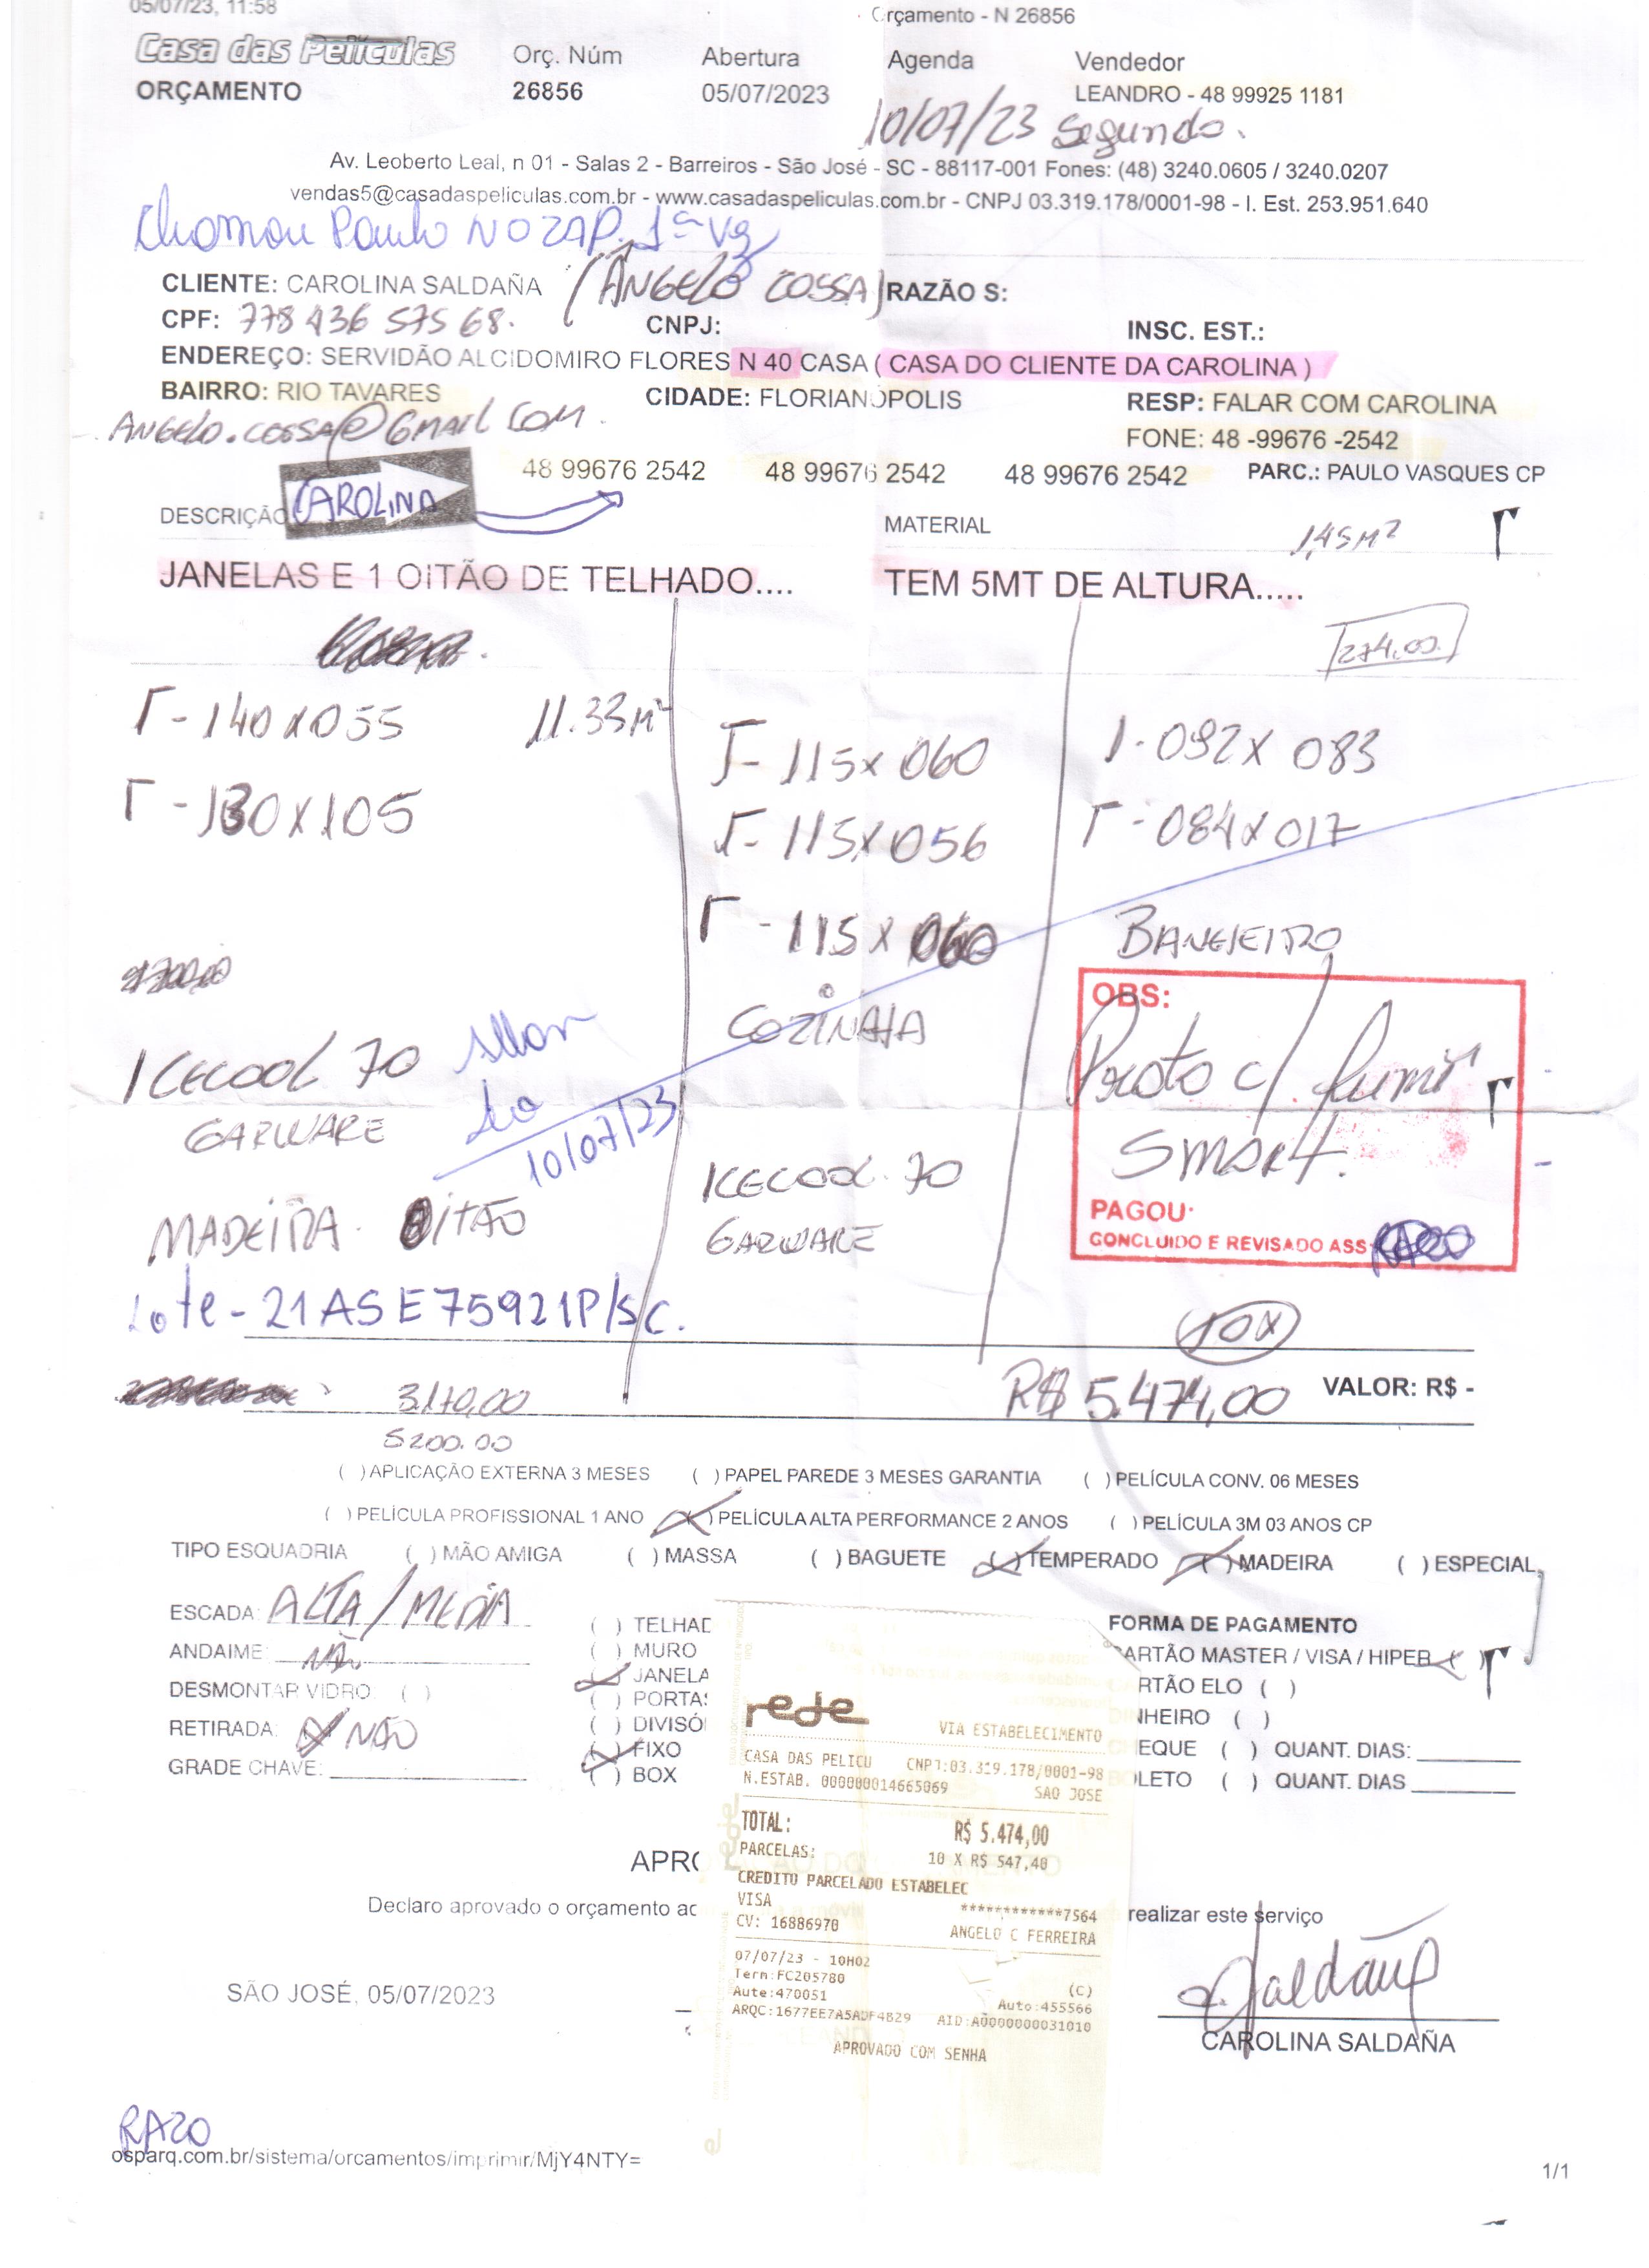 05/07/23, 11:58
Orçamento - N 26856
Casa das Películas
Orç. Núm Abertura Agenda Vendedor
ORÇAMENTO 26856 05/07/2023 LEANDRO - 48 99925 1181
10/07/23 Segunda.
Av. Leoberto Leal, n 01 - Salas 2 - Barreiros - São José - SC - 88117-001 Fones: (48) 3240.0605 / 3240.0207
vendas5@casadaspeliculas.com.br - www.casadaspeliculas.com.br - CNPJ 03.319.178/0001-98 - I. Est. 253.951.640
Chamou Paulo NO ZAP. 1ª Vg
CLIENTE: CAROLINA SALDAÑA (ÂNGELO COSSA) RAZÃO S:
CPF: 778 436 575 68. CNPJ: INSC. EST.:
ENDEREÇO: SERVIDÃO ALCIDOMIRO FLORES N 40 CASA ( CASA DO CLIENTE DA CAROLINA )
BAIRRO: RIO TAVARES CIDADE: FLORIANÓPOLIS RESP: FALAR COM CAROLINA
ANGELO.COSSA@GMAIL COM.
FONE: 48 -99676 -2542
48 99676 2542 48 99676 2542 48 99676 2542 PARC.: PAULO VASQUES CP
CAROLINA
DESCRIÇÃO MATERIAL
1,45M²
JANELAS E 1 OITÃO DE TELHADO.... TEM 5MT DE ALTURA.....
274.00
140X055 11.33M²
115X060
1-092X083
130X105
115X056
084X017
115X060
BANHEIRO
COZINHA
ICECOOL 70
GARWARE
10/07/23
OBS:
Preto c/ fumê
Smart.
PAGOU:
CONCLUIDO E REVISADO ASS
ICECOOL 70
GARWARE
MADEIRA OITÃO
Lote - 21ASE75921P/SC.
10X
3.170,00
R$ 5.474,00 VALOR: R$ -
5200.00
( ) APLICAÇÃO EXTERNA 3 MESES ( ) PAPEL PAREDE 3 MESES GARANTIA ( ) PELÍCULA CONV. 06 MESES
( ) PELÍCULA PROFISSIONAL 1 ANO (X) PELÍCULA ALTA PERFORMANCE 2 ANOS ( ) PELÍCULA 3M 03 ANOS CP
TIPO ESQUADRIA ( ) MÃO AMIGA ( ) MASSA ( ) BAGUETE (X) TEMPERADO (X) MADEIRA ( ) ESPECIAL
ESCADA: ALTA/MEDIA
ANDAIME: NÃO
DESMONTAR VIDRO: ( )
RETIRADA: NÃO
GRADE CHAVE:
( ) TELHAD
( ) MURO
(X) JANELA
( ) PORTAS
( ) DIVISÓ
(X) FIXO
( ) BOX
FORMA DE PAGAMENTO
ARTÃO MASTER / VISA / HIPER (X)
RTÃO ELO ( )
NHEIRO ( )
EQUE ( ) QUANT. DIAS:
LETO ( ) QUANT. DIAS
rede
VIA ESTABELECIMENTO
CASA DAS PELICU CNPJ:03.319.178/0001-98
N.ESTAB. 000000014665069 SAO JOSE
TOTAL: R$ 5.474,00
PARCELAS: 10 X R$ 547,40
CREDITO PARCELADO ESTABELEC
VISA ************7564
CV: 16886970 ANGELO C FERREIRA
07/07/23 - 10H02
Term:FC205780 (C)
Aute:470051 Auto:455566
ARQC:1677EE7A5ADF4B29 AID:A0000000031010
APROVADO COM SENHA
APRO
Declaro aprovado o orçamento ac realizar este serviço
SÃO JOSÉ, 05/07/2023
Saldaña
CAROLINA SALDAÑA
RAZO
osparq.com.br/sistema/orcamentos/imprimir/MjY4NTY=
1/1